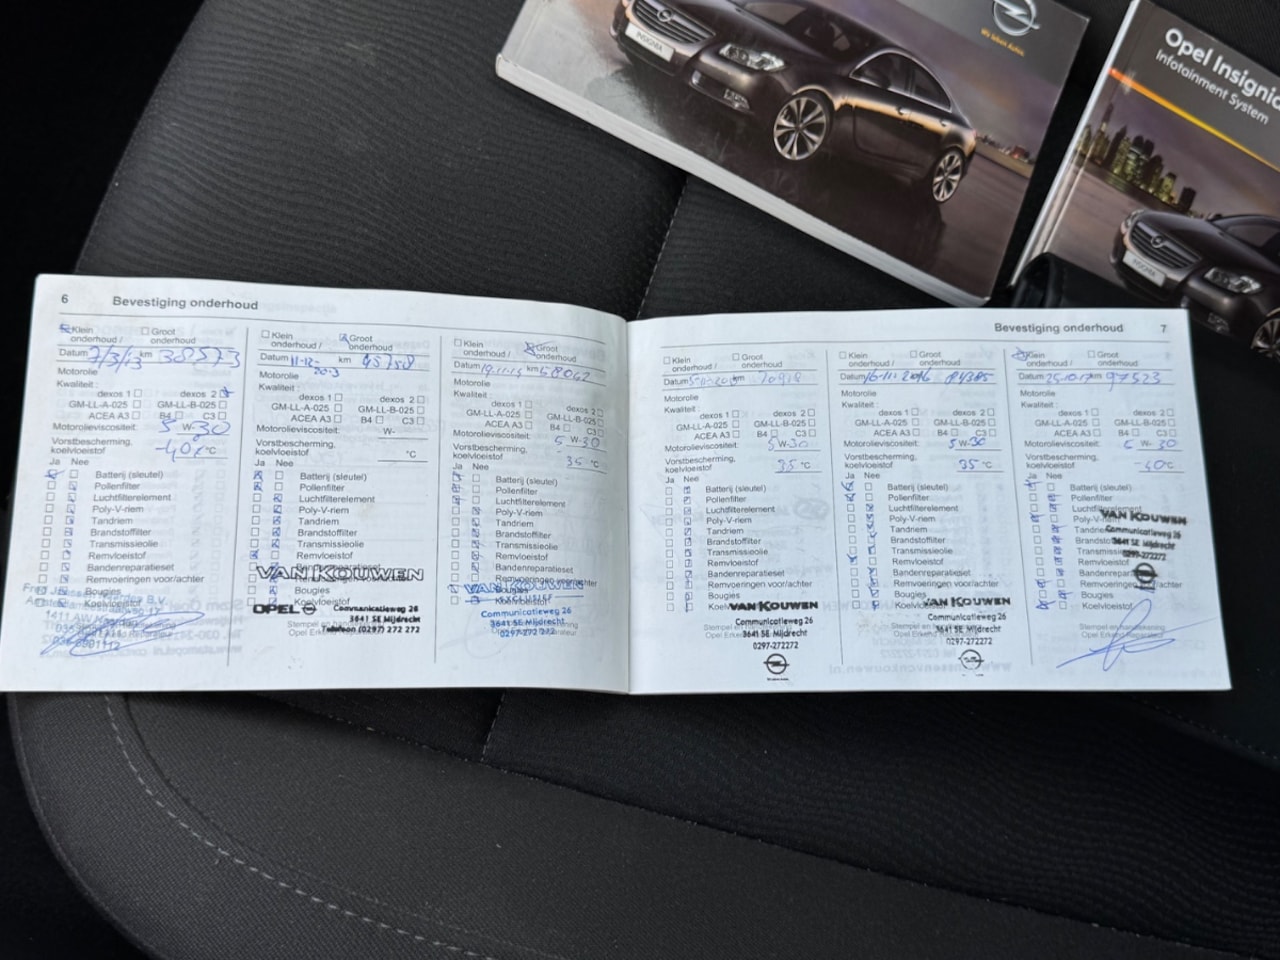 Wir leben Autos.
INSIGNIA
Opel Insignia
Infotainment System
INSIGNIA
6 Bevestiging onderhoud
Klein onderhoud / Groot onderhoud
Datum 7/3/13 km 38573
Motorolie
Kwaliteit :
dexos 1 dexos 2
GM-LL-A-025 GM-LL-B-025
ACEA A3 B4 C3
Motorolieviscositeit: 5 W-30
Vorstbescherming, koelvloeistof -40 °C
Ja Nee
Batterij (sleutel)
Pollenfilter
Luchtfilterelement
Poly-V-riem
Tandriem
Brandstoffilter
Transmissieolie
Remvloeistof
Bandenreparatieset
Remvoeringen voor/achter
Bougies
Koelvloeistof
Klein onderhoud / Groot onderhoud
Datum 11-12- 2013 km 45758
Motorolie
Kwaliteit :
dexos 1 dexos 2
GM-LL-A-025 GM-LL-B-025
ACEA A3 B4 C3
W-
Vorstbescherming, koelvloeistof °C
Ja Nee
Batterij (sleutel)
Pollenfilter
Luchtfilterelement
Poly-V-riem
Tandriem
Brandstoffilter
Transmissieolie
Remvloeistof
VAN KOUWEN
Bougies
OPEL Communicatieweg 26
3641 SE Mijdrecht
Telefoon (0297) 272 272
Klein onderhoud / Groot onderhoud
Datum 19-11-14 km 58062
Motorolie
Kwaliteit :
dexos 1 dexos 2
GM-LL-A-025 GM-LL-B-025
ACEA A3 B4 C3
Motorolieviscositeit: 5 W-30
Vorstbescherming, koelvloeistof 35 °C
Ja Nee
Batterij (sleutel)
Pollenfilter
Luchtfilterelement
Poly-V-riem
Tandriem
Brandstoffilter
Transmissieolie
Remvloeistof
Bandenreparatieset
Remvoeringen voor/achter
VAN KOUWEN
Bougies
Koelvloeistof
Communicatieweg 26
3641 SE Mijdrecht
0297-272272
Bevestiging onderhoud 7
Klein onderhoud / Groot onderhoud
Datum km
Motorolie
Kwaliteit :
dexos 1 dexos 2
GM-LL-A-025 GM-LL-B-025
ACEA A3 B4 C3
Motorolieviscositeit: 5 W-30
Vorstbescherming, koelvloeistof 35 °C
Ja Nee
Batterij (sleutel)
Pollenfilter
Luchtfilterelement
Poly-V-riem
Tandriem
Brandstoffilter
Transmissieolie
Remvloeistof
Bandenreparatieset
Remvoeringen voor/achter
Bougies
VAN KOUWEN
Communicatieweg 26
3641 SE Mijdrecht
0297-272272
Klein onderhoud / Groot onderhoud
Datum 16-11-2016 81385
Motorolie
Kwaliteit :
dexos 1 dexos 2
GM-LL-A-025 GM-LL-B-025
ACEA A3 B4 C3
Motorolieviscositeit: 5 W-30
Vorstbescherming, koelvloeistof 35 °C
Ja Nee
Batterij (sleutel)
Pollenfilter
Luchtfilterelement
Poly-V-riem
Tandriem
Brandstoffilter
Transmissieolie
Remvloeistof
Bandenreparatieset
Remvoeringen voor/achter
Bougies
VAN KOUWEN
Communicatieweg 26
3641 SE Mijdrecht
0297-272272
Klein onderhoud / Groot onderhoud
Datum 25-10-17 km 97523
Motorolie
Kwaliteit :
dexos 1 dexos 2
GM-LL-A-025 GM-LL-B-025
ACEA A3 B4 C3
Motorolieviscositeit: 5 W-30
Vorstbescherming, koelvloeistof °C
Ja Nee
Batterij (sleutel)
Pollenfilter
Luchtfilterelement
VAN KOUWEN
Communicatieweg 26
3641 SE Mijdrecht
0297-272272
Bandenreparatieset
Remvoeringen voor/achter
Bougies
Koelvloeistof